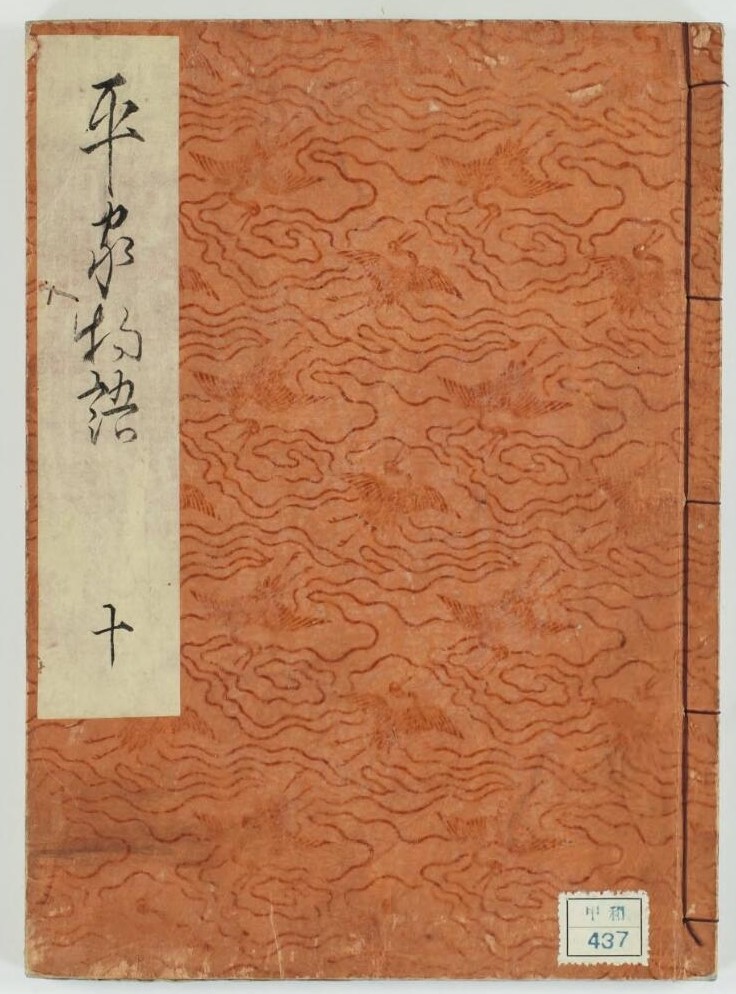 平家物語
十
甲和
437